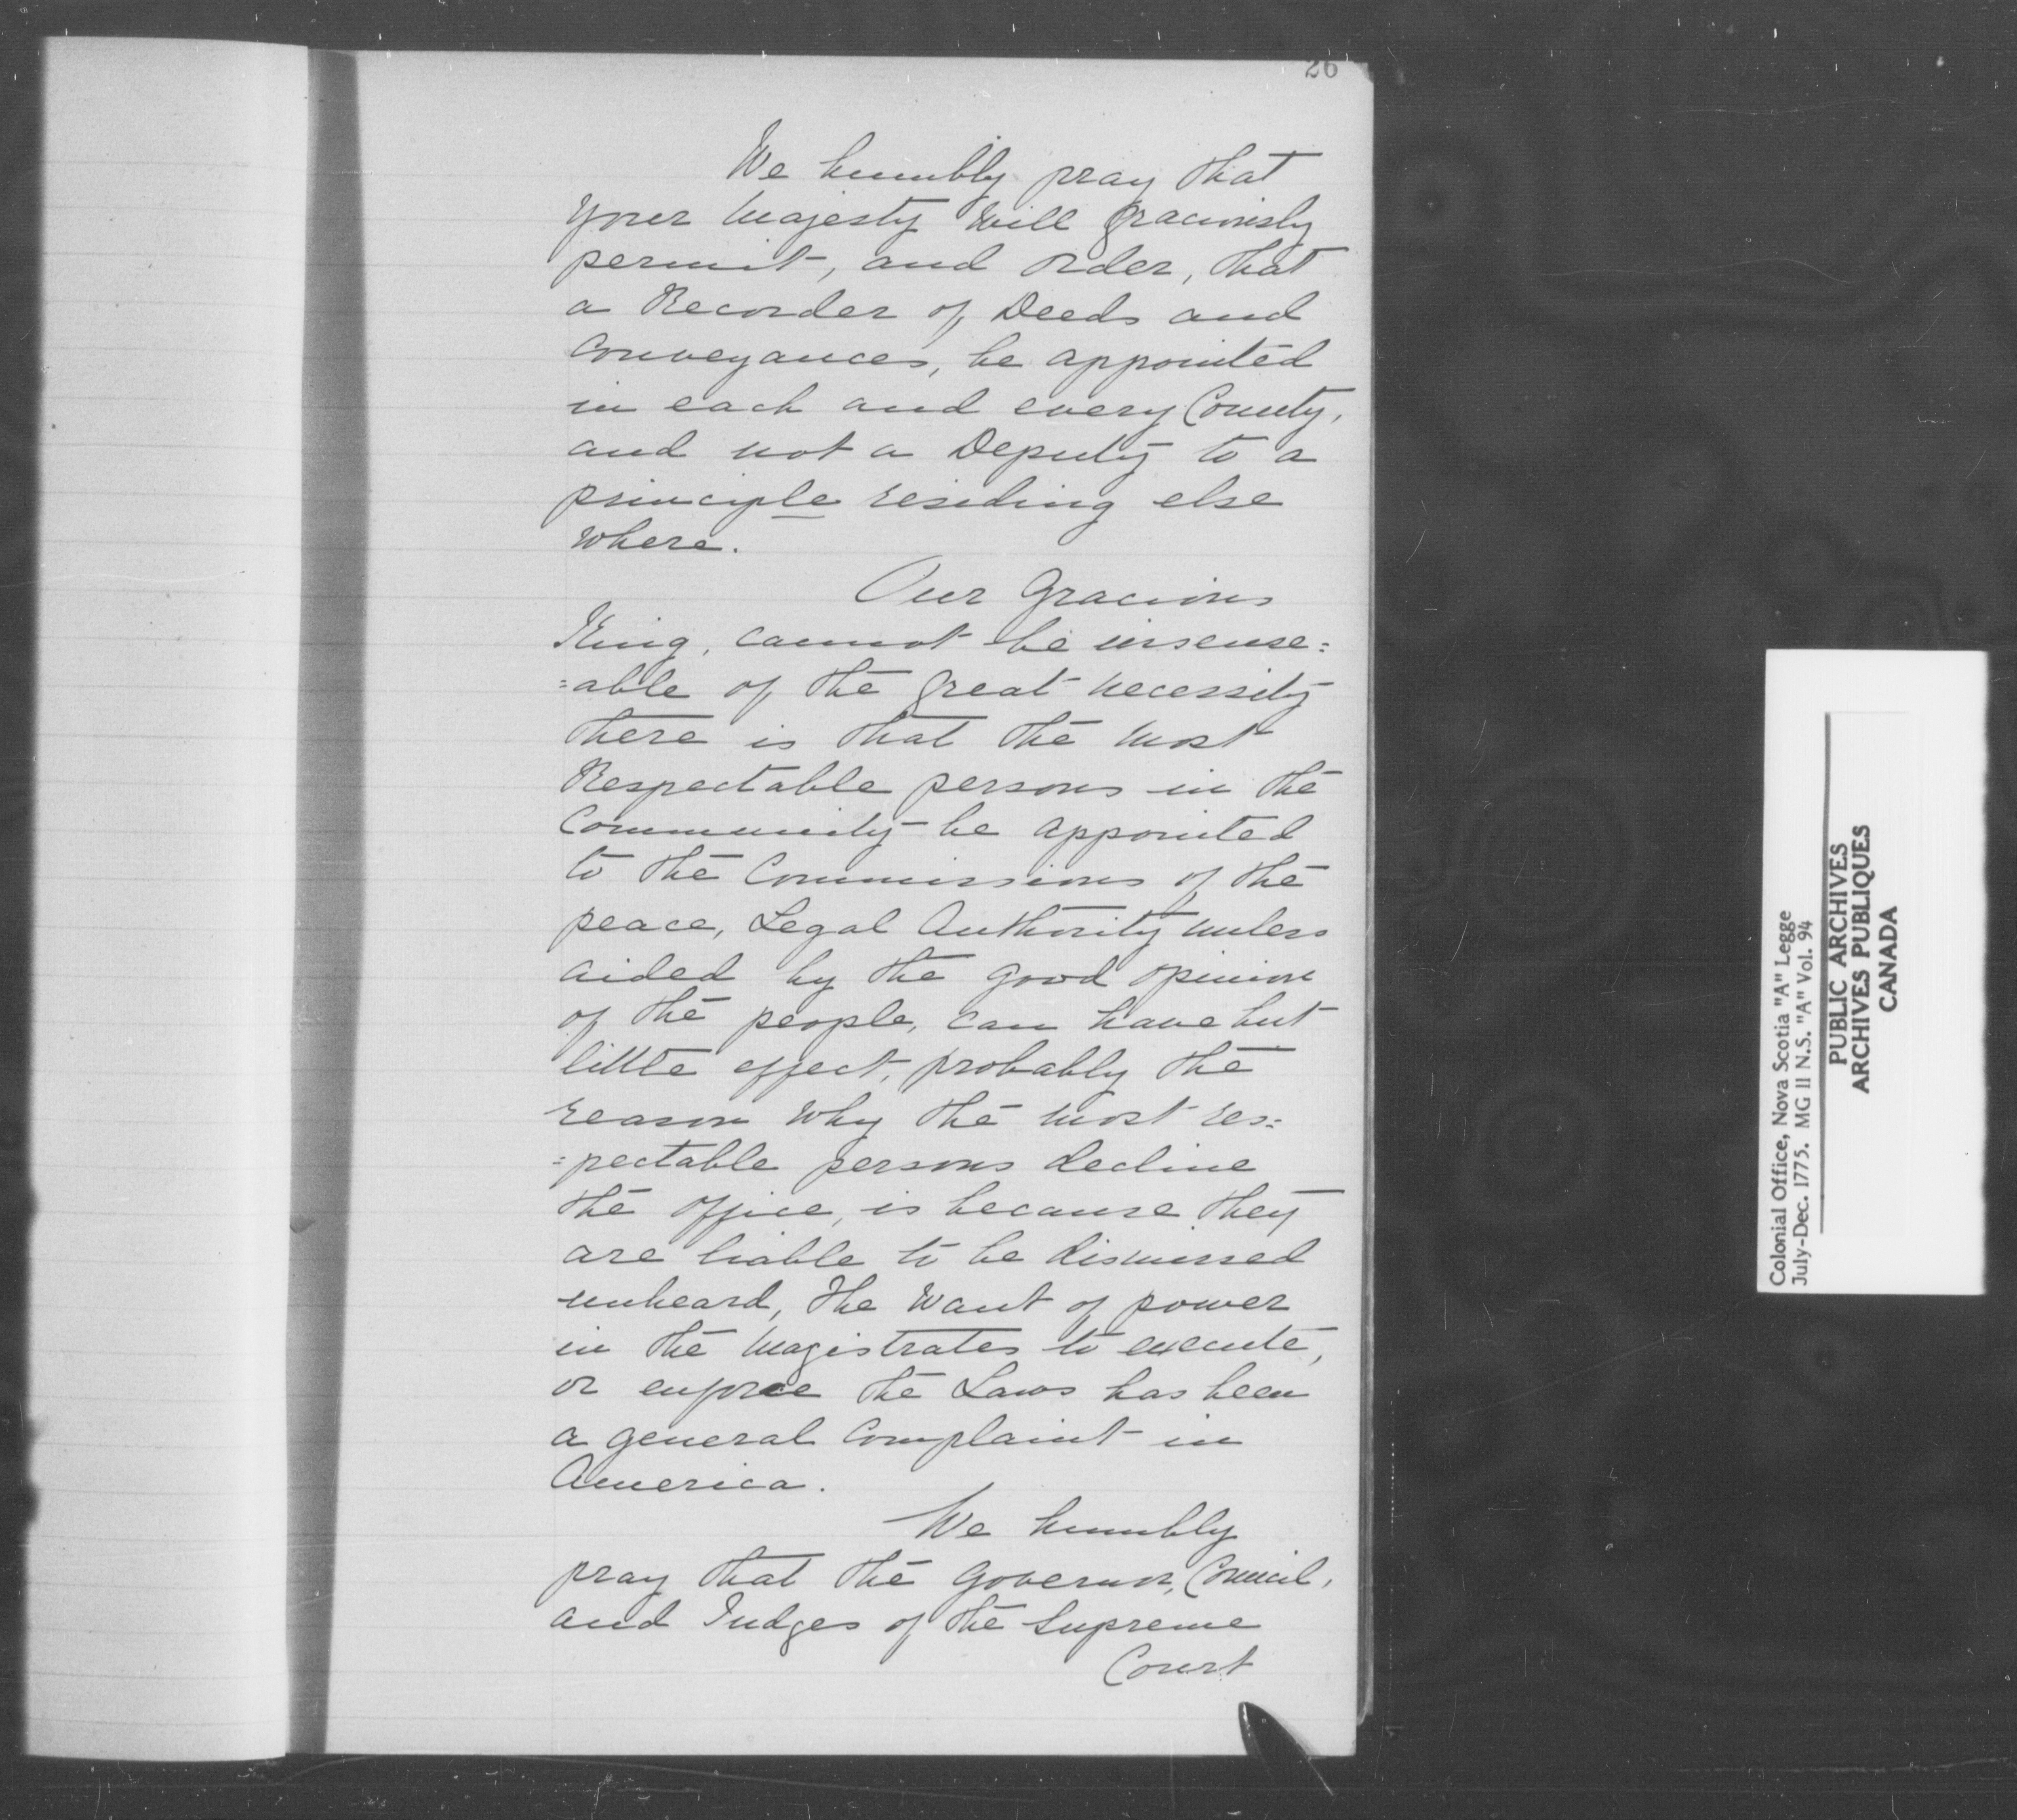 26
We humbly pray that
your Majesty will graciously
permit, and order, that
a Recorder of Deeds and
Conveyances, be appointed
in each and every County,
and not a Deputy to a
principle residing else
where.
Our Gracious
King, cannot be insense=
=able of the great necessity
there is that the most
Respectable persons in the
Community be appointed
to the Commissions of the
peace, Legal Authority unless
aided by the good opinion
of the people, can have but
little effect, probably the
reason why the most res=
=pectable persons decline
the office, is because they
are liable to be dismissed
unheard, the want of power
in the Magistrates to execute,
or enforce the Laws has been
a general Complaint in
America.
We humbly
pray that the Governor, Council,
and Judges of the Supreme
Court
Colonial Office, Nova Scotia "A" Legge
July-Dec. 1775. MG 11 N.S. "A" Vol. 94
PUBLIC ARCHIVES
ARCHIVES PUBLIQUES
CANADA